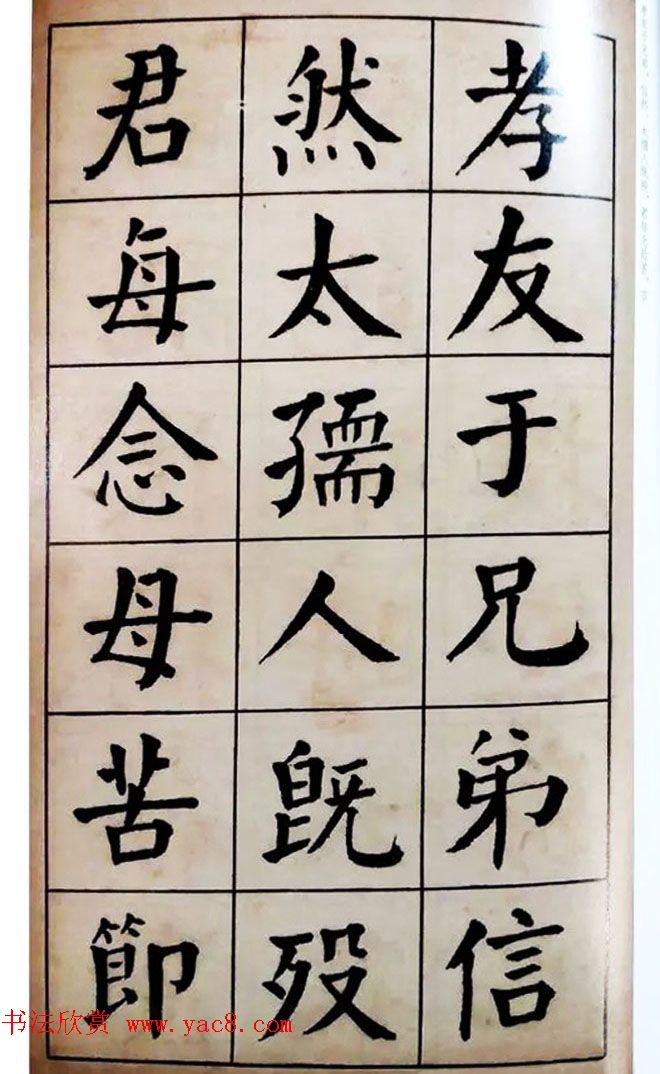 孝友于兄弟信
然太孺人既殁
君每念母苦節
书法欣赏 www.yac8.com